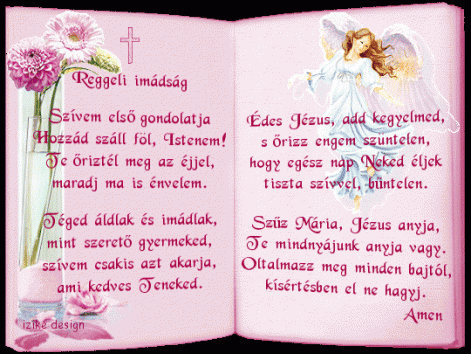 Reggeli imádság
Szívem első gondolatja
Hozzád száll föl, Istenem!
Te őriztél meg az éjjel,
maradj ma is énvelem.
Téged áldlak és imádlak,
mint szerető gyermeked,
szívem csakis azt akarja,
ami kedves Teneked.
izike design
Édes Jézus, add kegyelmed,
s őrizz engem szüntelen,
hogy egész nap Neked éljek
tiszta szívvel, bűntelen.
Szűz Mária, Jézus anyja,
Te mindnyájunk anyja vagy.
Oltalmazz meg minden bajtól,
kísértésben el ne hagyj.
Amen